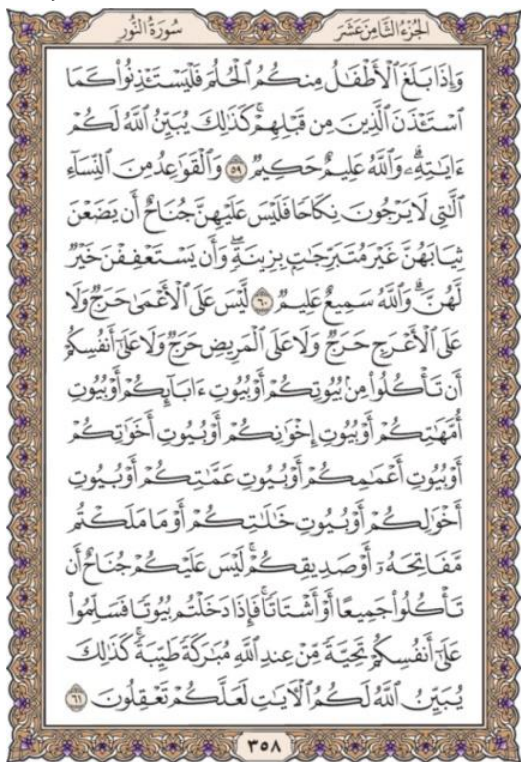 الجزء الثامن عشر
سورة النور
وَإِذَا بَلَغَ ٱلْأَطْفَٰلُ مِنكُمُ ٱلْحُلُمَ فَلْيَسْتَـْٔذِنُوا۟ كَمَا
ٱسْتَـْٔذَنَ ٱلَّذِينَ مِن قَبْلِهِمْ ۚ كَذَٰلِكَ يُبَيِّنُ ٱللَّهُ لَكُمْ
ءَايَٰتِهِۦ ۗ وَٱللَّهُ عَلِيمٌ حَكِيمٌ ٥٩ وَٱلْقَوَٰعِدُ مِنَ ٱلنِّسَآءِ
ٱلَّٰتِى لَا يَرْجُونَ نِكَاحًا فَلَيْسَ عَلَيْهِنَّ جُنَاحٌ أَن يَضَعْنَ
ثِيَابَهُنَّ غَيْرَ مُتَبَرِّجَٰتٍۭ بِزِينَةٍ ۖ وَأَن يَسْتَعْفِفْنَ خَيْرٌ
لَّهُنَّ ۗ وَٱللَّهُ سَمِيعٌ عَلِيمٌ ٦٠ لَّيْسَ عَلَى ٱلْأَعْمَىٰ حَرَجٌ وَلَا
عَلَى ٱلْأَعْرَجِ حَرَجٌ وَلَا عَلَى ٱلْمَرِيضِ حَرَجٌ وَلَا عَلَىٰٓ أَنفُسِكُمْ
أَن تَأْكُلُوا۟ مِنۢ بُيُوتِكُمْ أَوْ بُيُوتِ ءَابَآئِكُمْ أَوْ بُيُوتِ
أُمَّهَٰتِكُمْ أَوْ بُيُوتِ إِخْوَٰنِكُمْ أَوْ بُيُوتِ أَخَوَٰتِكُمْ
أَوْ بُيُوتِ أَعْمَٰمِكُمْ أَوْ بُيُوتِ عَمَّٰتِكُمْ أَوْ بُيُوتِ
أَخْوَٰلِكُمْ أَوْ بُيُوتِ خَٰلَٰتِكُمْ أَوْ مَا مَلَكْتُم
مَّفَاتِحَهُۥٓ أَوْ صَدِيقِكُمْ ۚ لَيْسَ عَلَيْكُمْ جُنَاحٌ أَن
تَأْكُلُوا۟ جَمِيعًا أَوْ أَشْتَاتًا ۚ فَإِذَا دَخَلْتُم بُيُوتًا فَسَلِّمُوا۟
عَلَىٰٓ أَنفُسِكُمْ تَحِيَّةً مِّنْ عِندِ ٱللَّهِ مُبَٰرَكَةً طَيِّبَةً ۚ كَذَٰلِكَ
يُبَيِّنُ ٱللَّهُ لَكُمُ ٱلْـَٔايَٰتِ لَعَلَّكُمْ تَعْقِلُونَ ٦١
٣٥٨